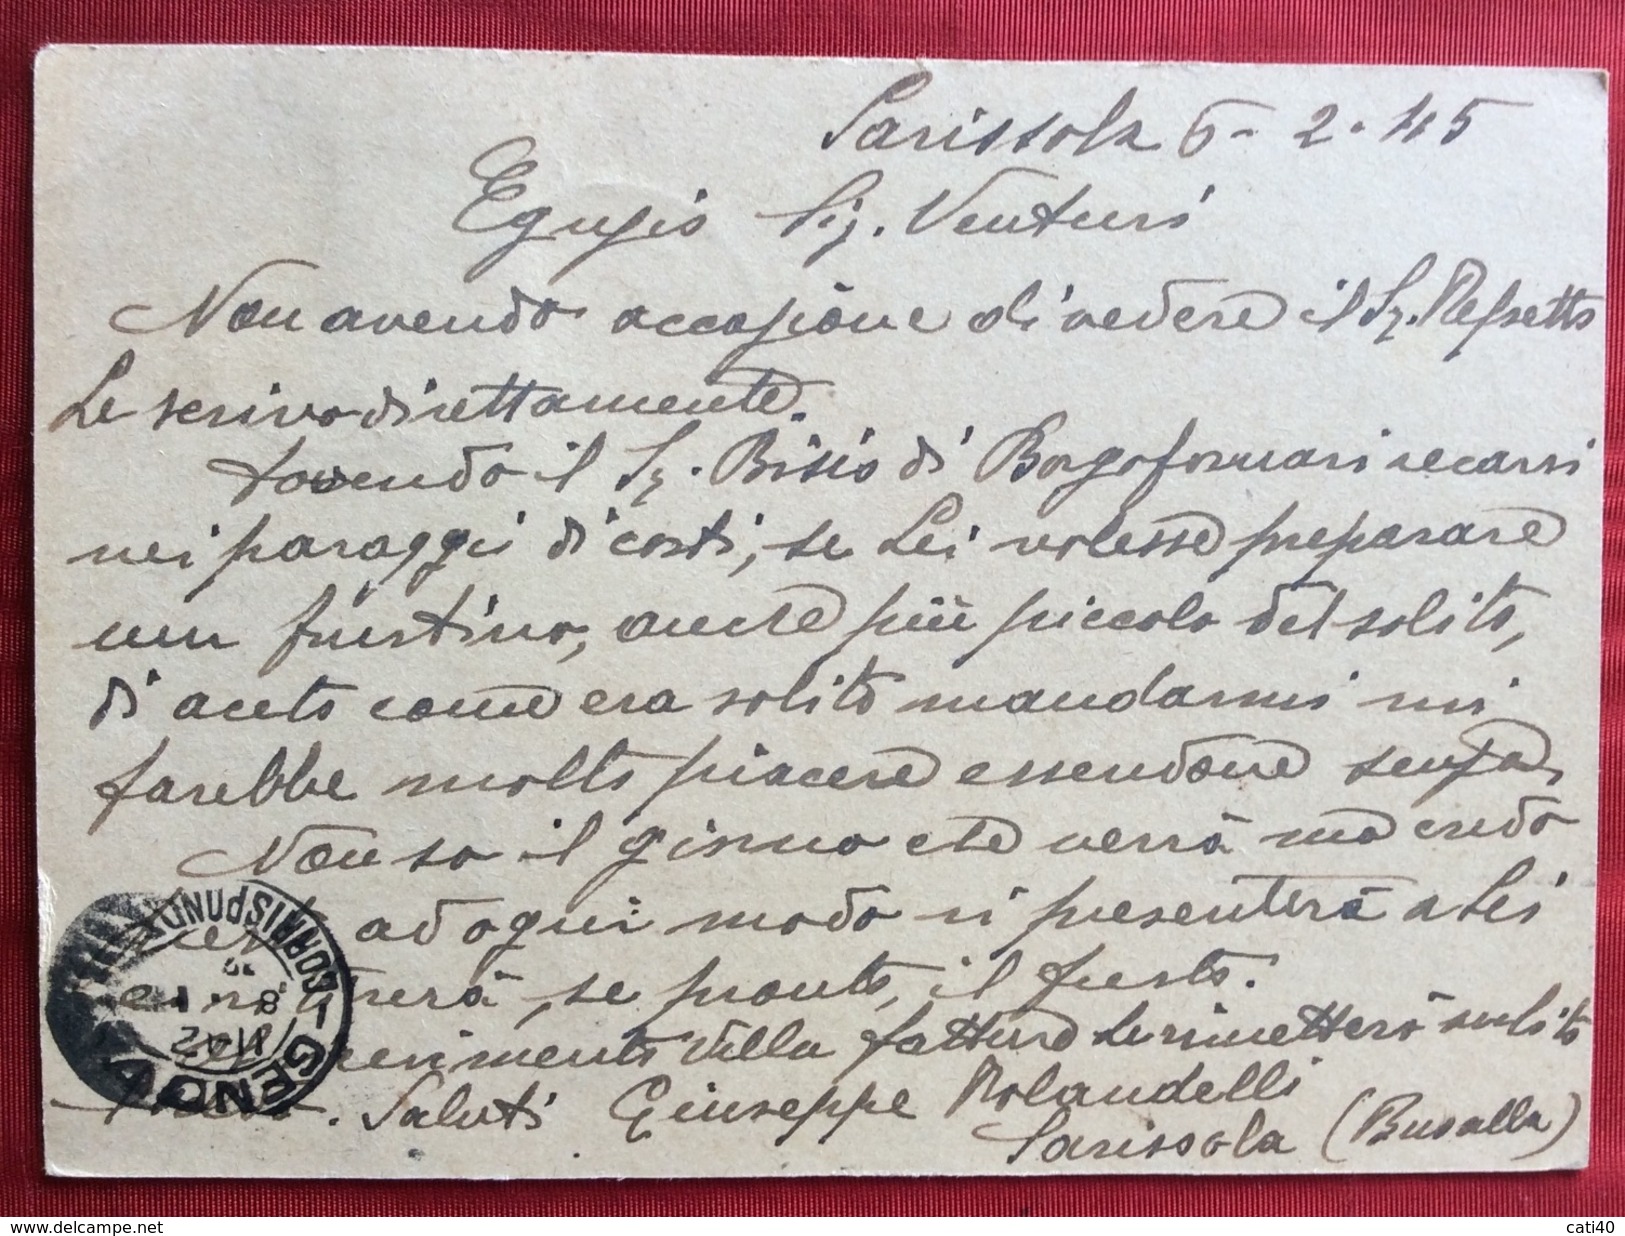 Sarissola 6-2-45
Egregio Sig. Venturi
Non avendo occasione di vedere il Sig. Repetto
Le scrivo direttamente.
Dovendo il Sig. Bisio di Borgofornari recarsi
nei paraggi di costi, se Lei volesse preparare
un fustino, anche più piccolo del solito,
di aceto come era solito mandarmi mi
farebbe molto piacere essendone senza.
Non so il giorno che verrà ma credo
ad ogni modo si presenterà a Lei
e ritirerà, se pronto, il fusto.
della fattura Le rimetterò subito
Saluti Giuseppe Rolandelli
Sarissola (Busalla)
GENOVA
CORRISPONDENZE
cati40